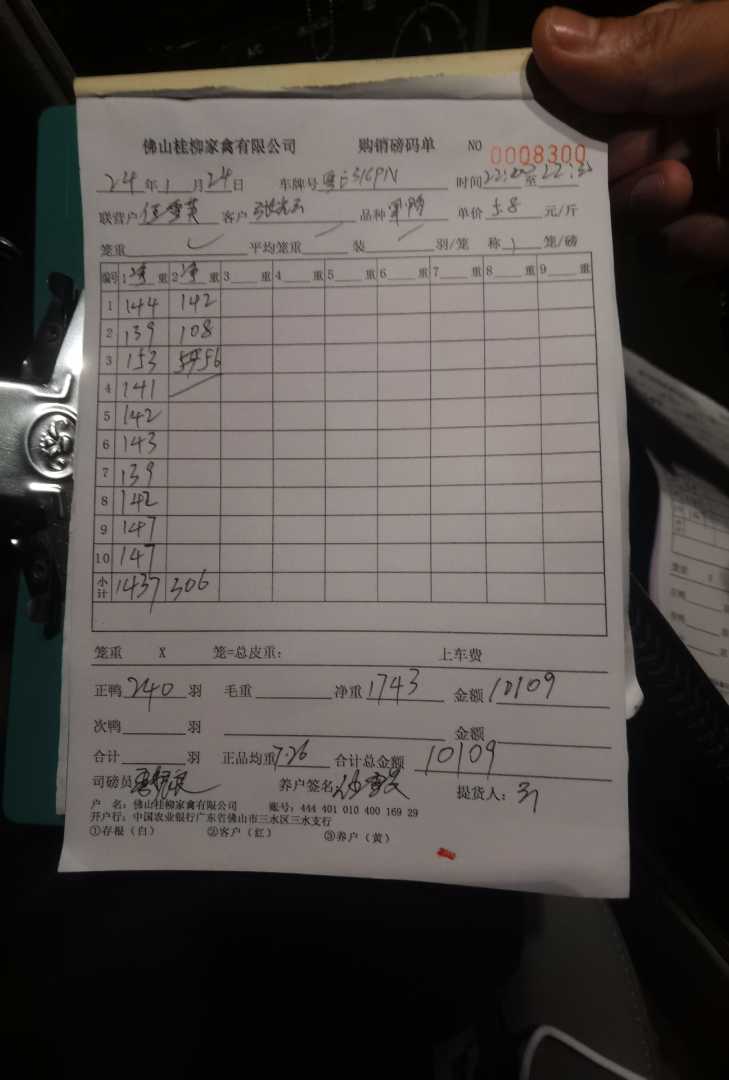 佛山桂柳家禽有限公司 购销磅码单 NO 0008300
24 年 1 月 24 日 车牌号 粤E316PN 时间 22:20 至 22:35
联营户 伍雪英 客户 品种 单价 5.8 元/斤
笼重 平均笼重 装 羽/笼 称 1 笼/磅
编号 1 净 重 2 净 重 3 重 4 重 5 重 6 重 7 重 8 重 9 重
1 144 142
2 139 108
3 153 56
4 141
5 142
6 143
7 139
8 142
9 147
10 147
小计 1437 306
笼重 X 笼=总皮重: 上车费
正鸭 240 羽 毛重 净重 1743 金额 10109
次鸭 羽 金额
合计 羽 正品均重 7.26 合计总金额 10109
司磅员 养户签名 提货人:
户 名: 佛山桂柳家禽有限公司 账号: 444 401 010 400 169 29
开户行: 中国农业银行广东省佛山市三水区三水支行
①存根(白) ②客户(红) ③养户(黄)